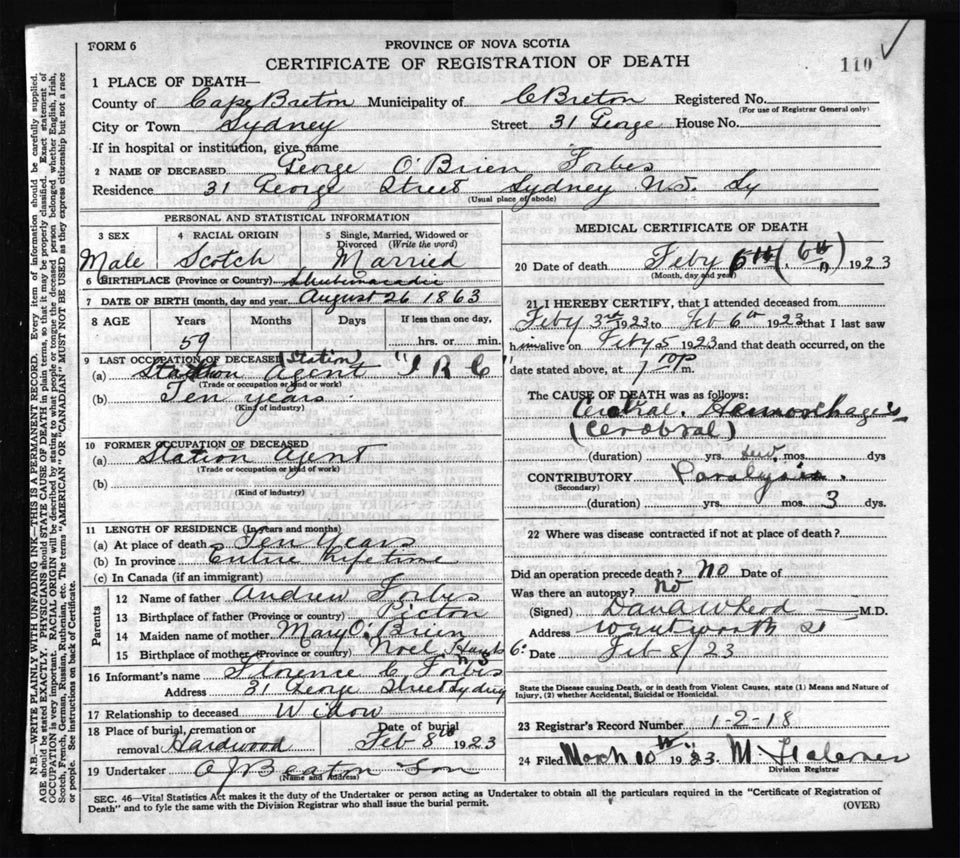 FORM 6
PROVINCE OF NOVA SCOTIA
CERTIFICATE OF REGISTRATION OF DEATH
110
1 PLACE OF DEATH—
County of Cape Breton Municipality of C Breton Registered No.
(For use of Registrar General only)
City or Town Sydney Street 31 George House No.
If in hospital or institution, give name
2 NAME OF DECEASED George O'Brien Forbes
Residence 31 George Street Sydney N.S. Sy
(Usual place of abode)
PERSONAL AND STATISTICAL INFORMATION
3 SEX 4 RACIAL ORIGIN 5 Single, Married, Widowed or Divorced (Write the word)
Male Scotch Married
6 BIRTHPLACE (Province or Country) Shubenacadie
7 DATE OF BIRTH (month, day and year) August 26 1863
8 AGE Years Months Days If less than one day,
59 hrs. or min.
9 LAST OCCUPATION OF DECEASED (Station
(a) Station Agent "I R C"
(Trade or occupation or kind of work)
(b) Ten years
(Kind of industry)
10 FORMER OCCUPATION OF DECEASED
(a) Station Agent
(Trade or occupation or kind of work)
(b)
(Kind of industry)
11 LENGTH OF RESIDENCE (In years and months)
(a) At place of death Ten Years
(b) In province Entire Life time
(c) In Canada (if an immigrant)
Parents
12 Name of father Andrew Forbes
13 Birthplace of father (Province or country) Picton
14 Maiden name of mother Mary O'Brien
15 Birthplace of mother (Province or country) Noel Hants
N S
16 Informant's name Florence C Forbes
Address 31 George Street Sydney
17 Relationship to deceased Widow
18 Place of burial, cremation or removal Hardwood Date of burial Feb 8th 1923
19 Undertaker O J Beaton Son
(Name and Address)
MEDICAL CERTIFICATE OF DEATH
20 Date of death Feby 6th (6th) 1923
(Month, day and year)
21 I HEREBY CERTIFY, that I attended deceased from
Feby 3rd 1923 to Feb 6th 1923 that I last saw
him alive on Feby 5 1923 and that death occurred, on the
date stated above, at 10 p m.
The CAUSE OF DEATH was as follows:
Hemorrhage
(Cerebral)
(duration) yrs. mos. dys
CONTRIBUTORY Paralysis.
(Secondary)
(duration) yrs. mos. 3 dys.
22 Where was disease contracted if not at place of death?
Did an operation precede death? No Date of
Was there an autopsy? No
(Signed) M.D.
Address Wentworth St
Date Feb 8/23
State the Disease causing Death, or in death from Violent Causes, state (1) Means and Nature of Injury, (2) whether Accidental, Suicidal or Homicidal.
23 Registrar's Record Number 1-2-18
24 Filed March 10th 1923. M
Division Registrar
SEC. 46—Vital Statistics Act makes it the duty of the Undertaker or person acting as Undertaker to obtain all the particulars required in the "Certificate of Registration of
Death" and to fyle the same with the Division Registrar who shall issue the burial permit. (OVER)
N.B.—WRITE PLAINLY WITH UNFADING INK—THIS IS A PERMANENT RECORD. Every item of information should be carefully supplied.
AGE should be stated EXACTLY. PHYSICIANS should STATE CAUSE OF DEATH in plain terms, so that it may be properly classified. Exact statement of
OCCUPATION is very important. RACIAL ORIGIN will be described by stating to what people or tongue the deceased person belonged whether English, Irish,
Scotch, French, German, Russian, Ruthenian, etc. The terms "AMERICAN" OR "CANADIAN" MUST NOT BE USED as they express citizenship but not a race
or people. See instructions on back of Certificate.